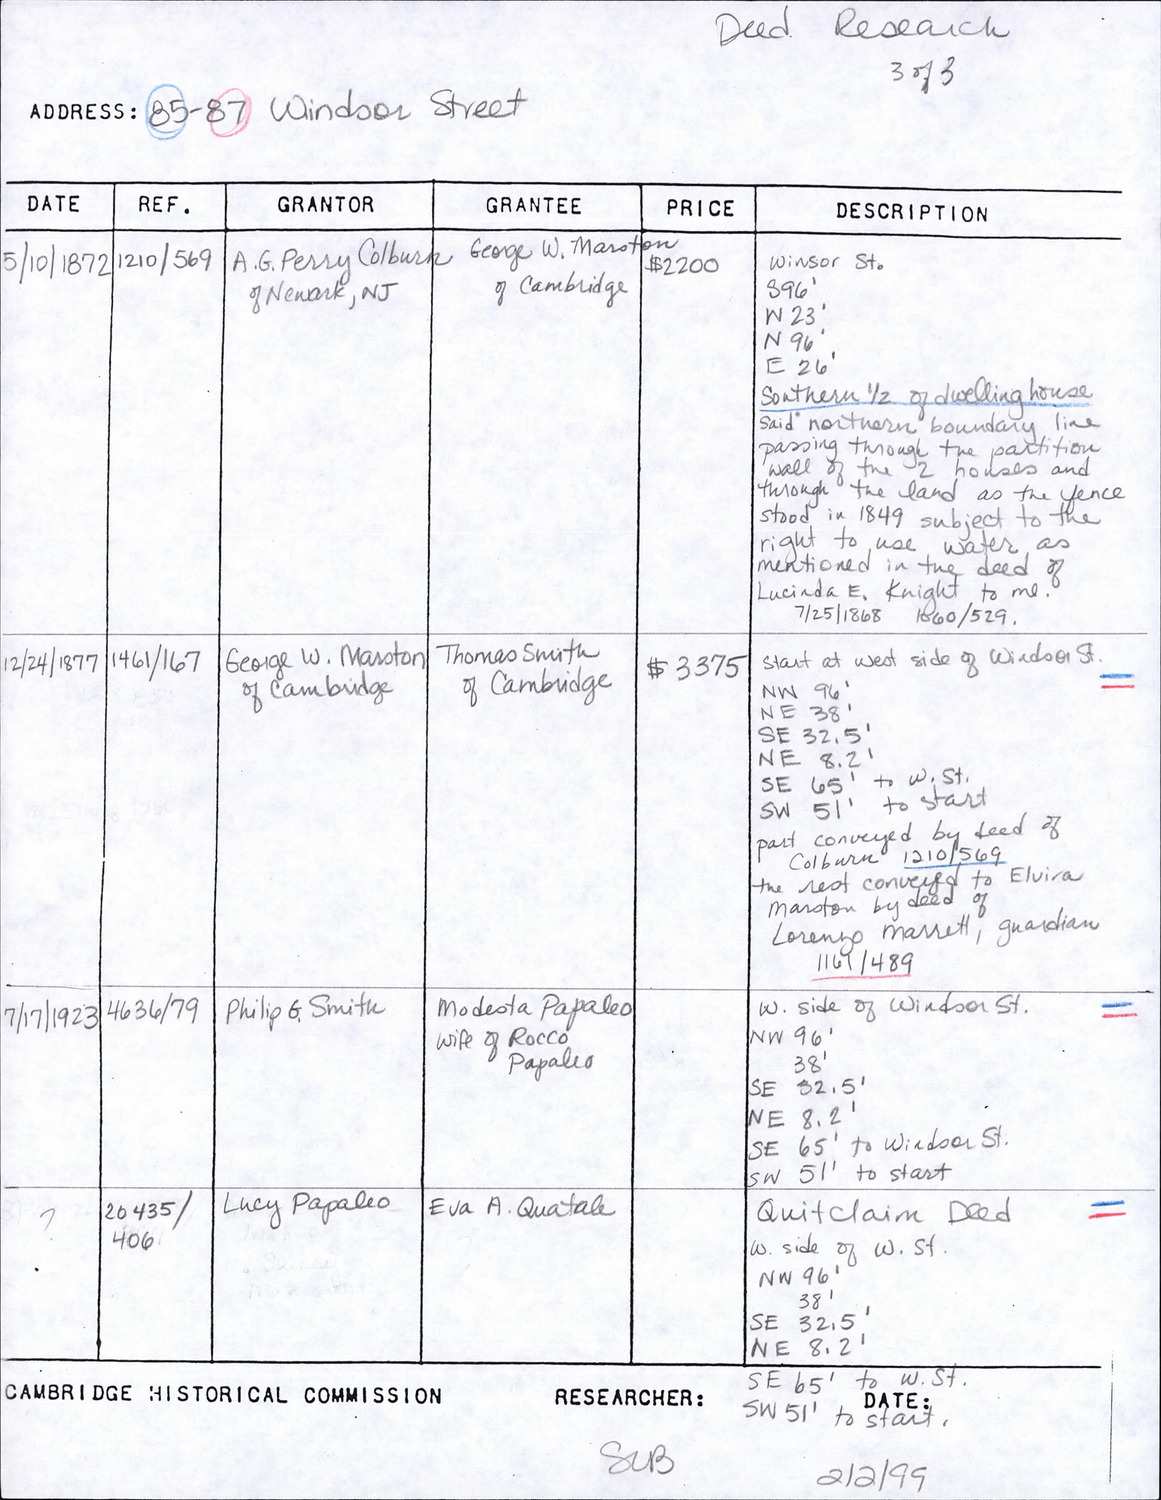 Deed Research
3 of 3
ADDRESS: 85-87 Windsor Street
DATE REF. GRANTOR GRANTEE PRICE DESCRIPTION
5/10/1872 1210/569 A.G. Perry Colburn George W. Marston $2200 Winsor St.
of Newark, NJ of Cambridge S96'
W 23'
N 96'
E 26'
Southern 1/2 of dwelling house
said northern boundary line
passing through the partition
wall of the 2 houses and
through the land as the fence
stood in 1849 subject to the
right to use water as
mentioned in the deed of
Lucinda E. Knight to me.
7/25/1868 1060/529.
12/24/1877 1461/167 George W. Marston Thomas Smith $3375 start at west side of Windsor St.
of Cambridge of Cambridge
NW 96'
NE 38'
SE 32.5'
NE 8.2'
SE 65' to W. St.
SW 51' to start
part conveyed by deed of
Colburn 1210/569
the rest conveyed to Elvira
Marston by deed of
Lorenzo Marrett, guardian
1161/489
7/17/1923 4636/79 Philip G. Smith Modesta Papaleo W. side of Windsor St.
wife of Rocco NW 96'
Papaleo 38'
SE 32.5'
NE 8.2'
SE 65' to Windsor St.
SW 51' to start
? 20435/ Lucy Papaleo Eva A. Quatale Quitclaim Deed
406 W. side of W. St.
NW 96'
38'
SE 32.5'
NE 8.2'
SE 65' to W. St.
SW 51' to start.
CAMBRIDGE HISTORICAL COMMISSION RESEARCHER: DATE:
SLB 2/2/99